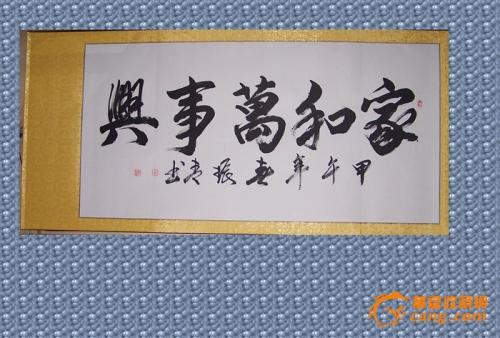 家和萬事興
甲午年春振书
華夏收藏網
cang.com